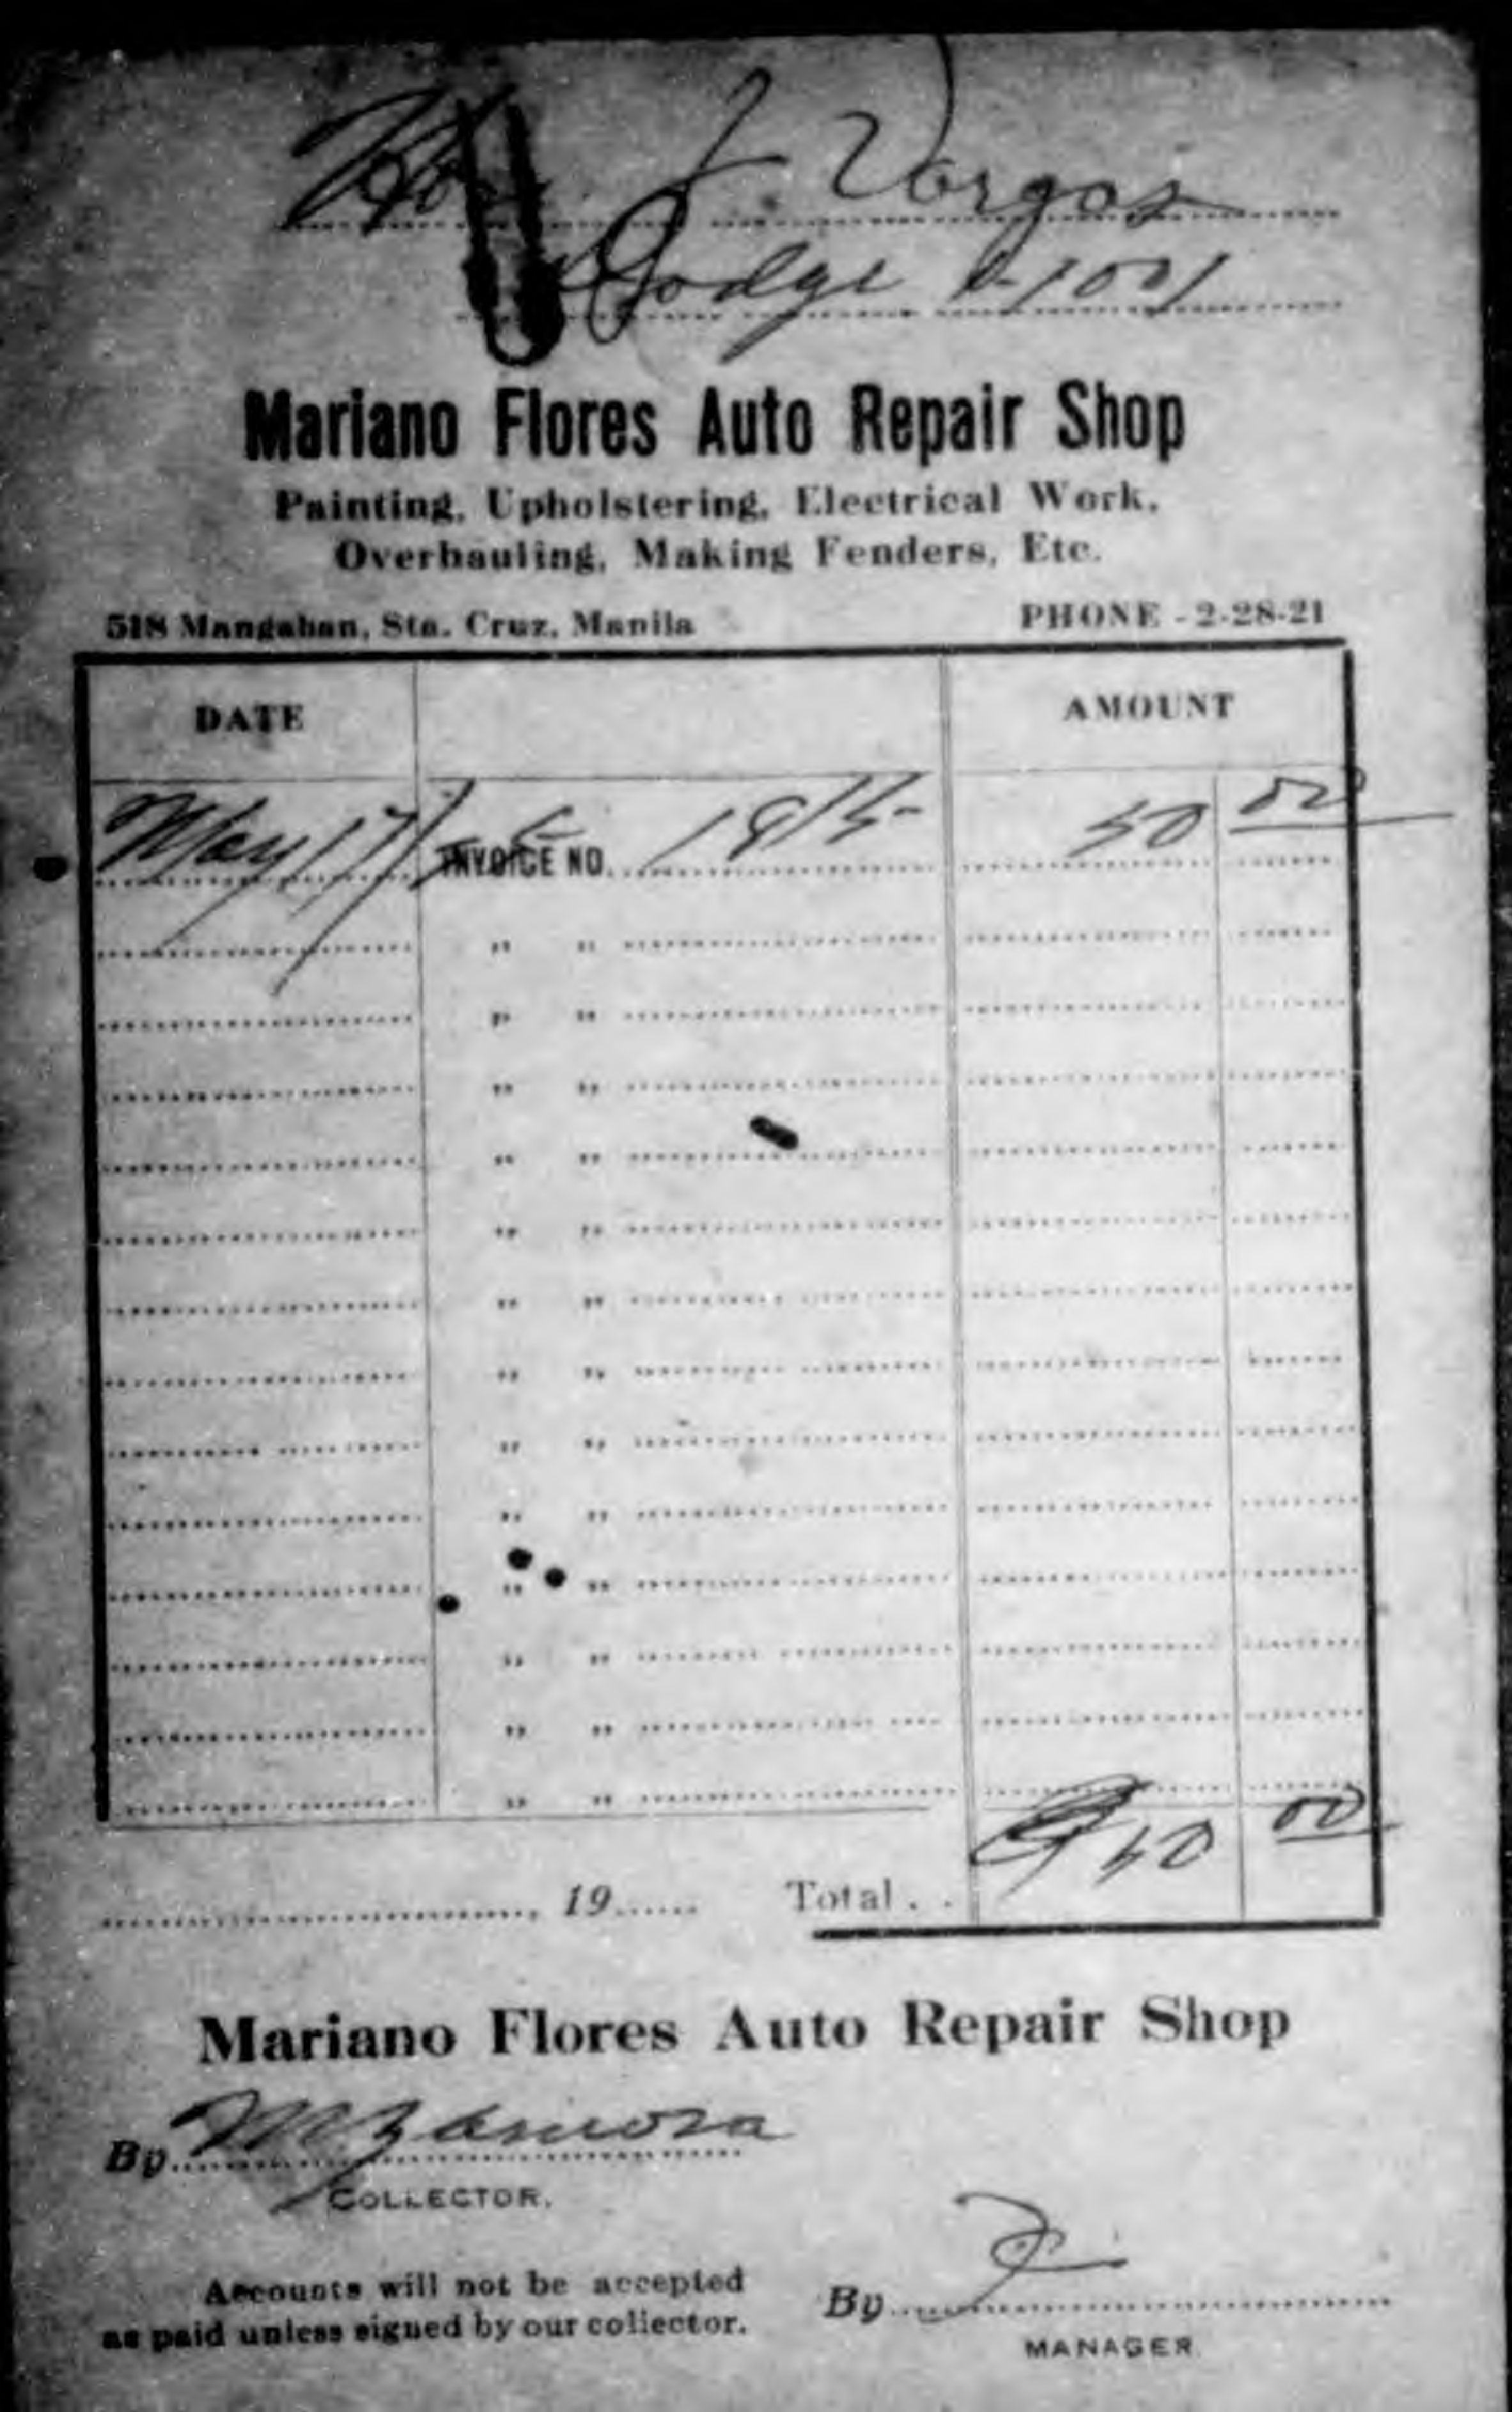 Hon. J. Vargas
Dodge
Mariano Flores Auto Repair Shop
Painting, Upholstering, Electrical Work,
Overhauling, Making Fenders, Etc.
518 Mangahan, Sta. Cruz, Manila PHONE - 2-28-21
DATE AMOUNT
May 17 INVOICE NO. 50 00
" "
" "
" "
" "
" "
" "
" "
" "
" "
" "
" "
" "
" "
, 19 Total . . ₱ 50 00
Mariano Flores Auto Repair Shop
By M. Zamora
COLLECTOR.
Accounts will not be accepted
as paid unless signed by our collector.
By
MANAGER